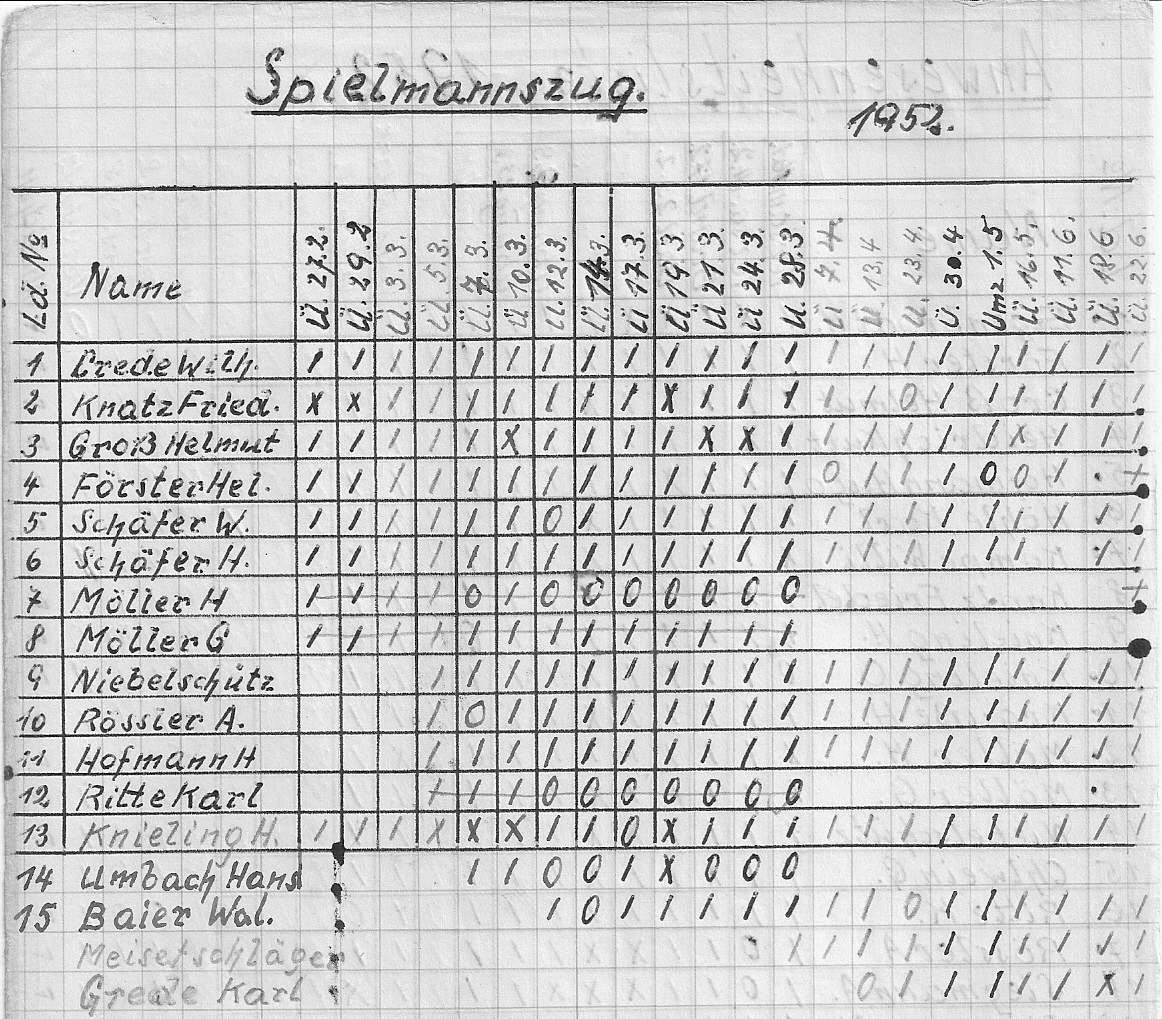 Spielmannszug.
1952.
Ld. No Name Ü. 27.2. Ü. 29.2 Ü. 3.3. Ü. 5.3. Ü. 7.3. Ü 10.3. Ü. 12.3. Ü. 14.3. Ü 17.3. Ü 19.3 Ü 21.3. Ü 24.3. Ü. 28.3 Ü 7.4. Ü. 13.4 Ü. 23.4. Ü. 30.4 Umz. 1.5 Ü. 16.5. Ü. 11.6. Ü. 18.6. Ü. 22.6.
1 Crede Wilh. / / / / / / / / / / / / / / / / / / / / / /
2 Knatz Fried. x x / / / / / / / x / / / / / 0 / / / / / /
3 Groß Helmut / / / / / x / / / / x x / / / / / / x / / /
4 Förster Hel. / / / / / / / / / / / / / 0 / / / 0 0 / . +
5 Schäfer W. / / / / / / 0 / / / / / / / / / / / / / / /
6 Schäfer H. / / / / / / / / / / / / / / / / / / / /
7 Möller H / / / / 0 / 0 0 0 0 0 0 0 +
8 Möller G / / / / / / / / / / / / /
9 Niebelschütz / / / / / / / / / / / / / / / / / / /
10 Rössler A. / 0 / / / / / / / / / / / / / / / / /
11 Hofmann H / / / / / / / / / / / / / / / / / / /
12 Ritte Karl + / / 0 0 0 0 0 0 0 .
13 Knieling H. / / / x x x / / 0 x / / / / / / / / / / / /
14 Umbach Hans / / 0 0 / x 0 0 0
15 Baier Wal. / 0 / / / / / / / 0 / / / / / /
Meisetschläger x / / / / / / / / /
Crede Karl 0 / / / / / x /